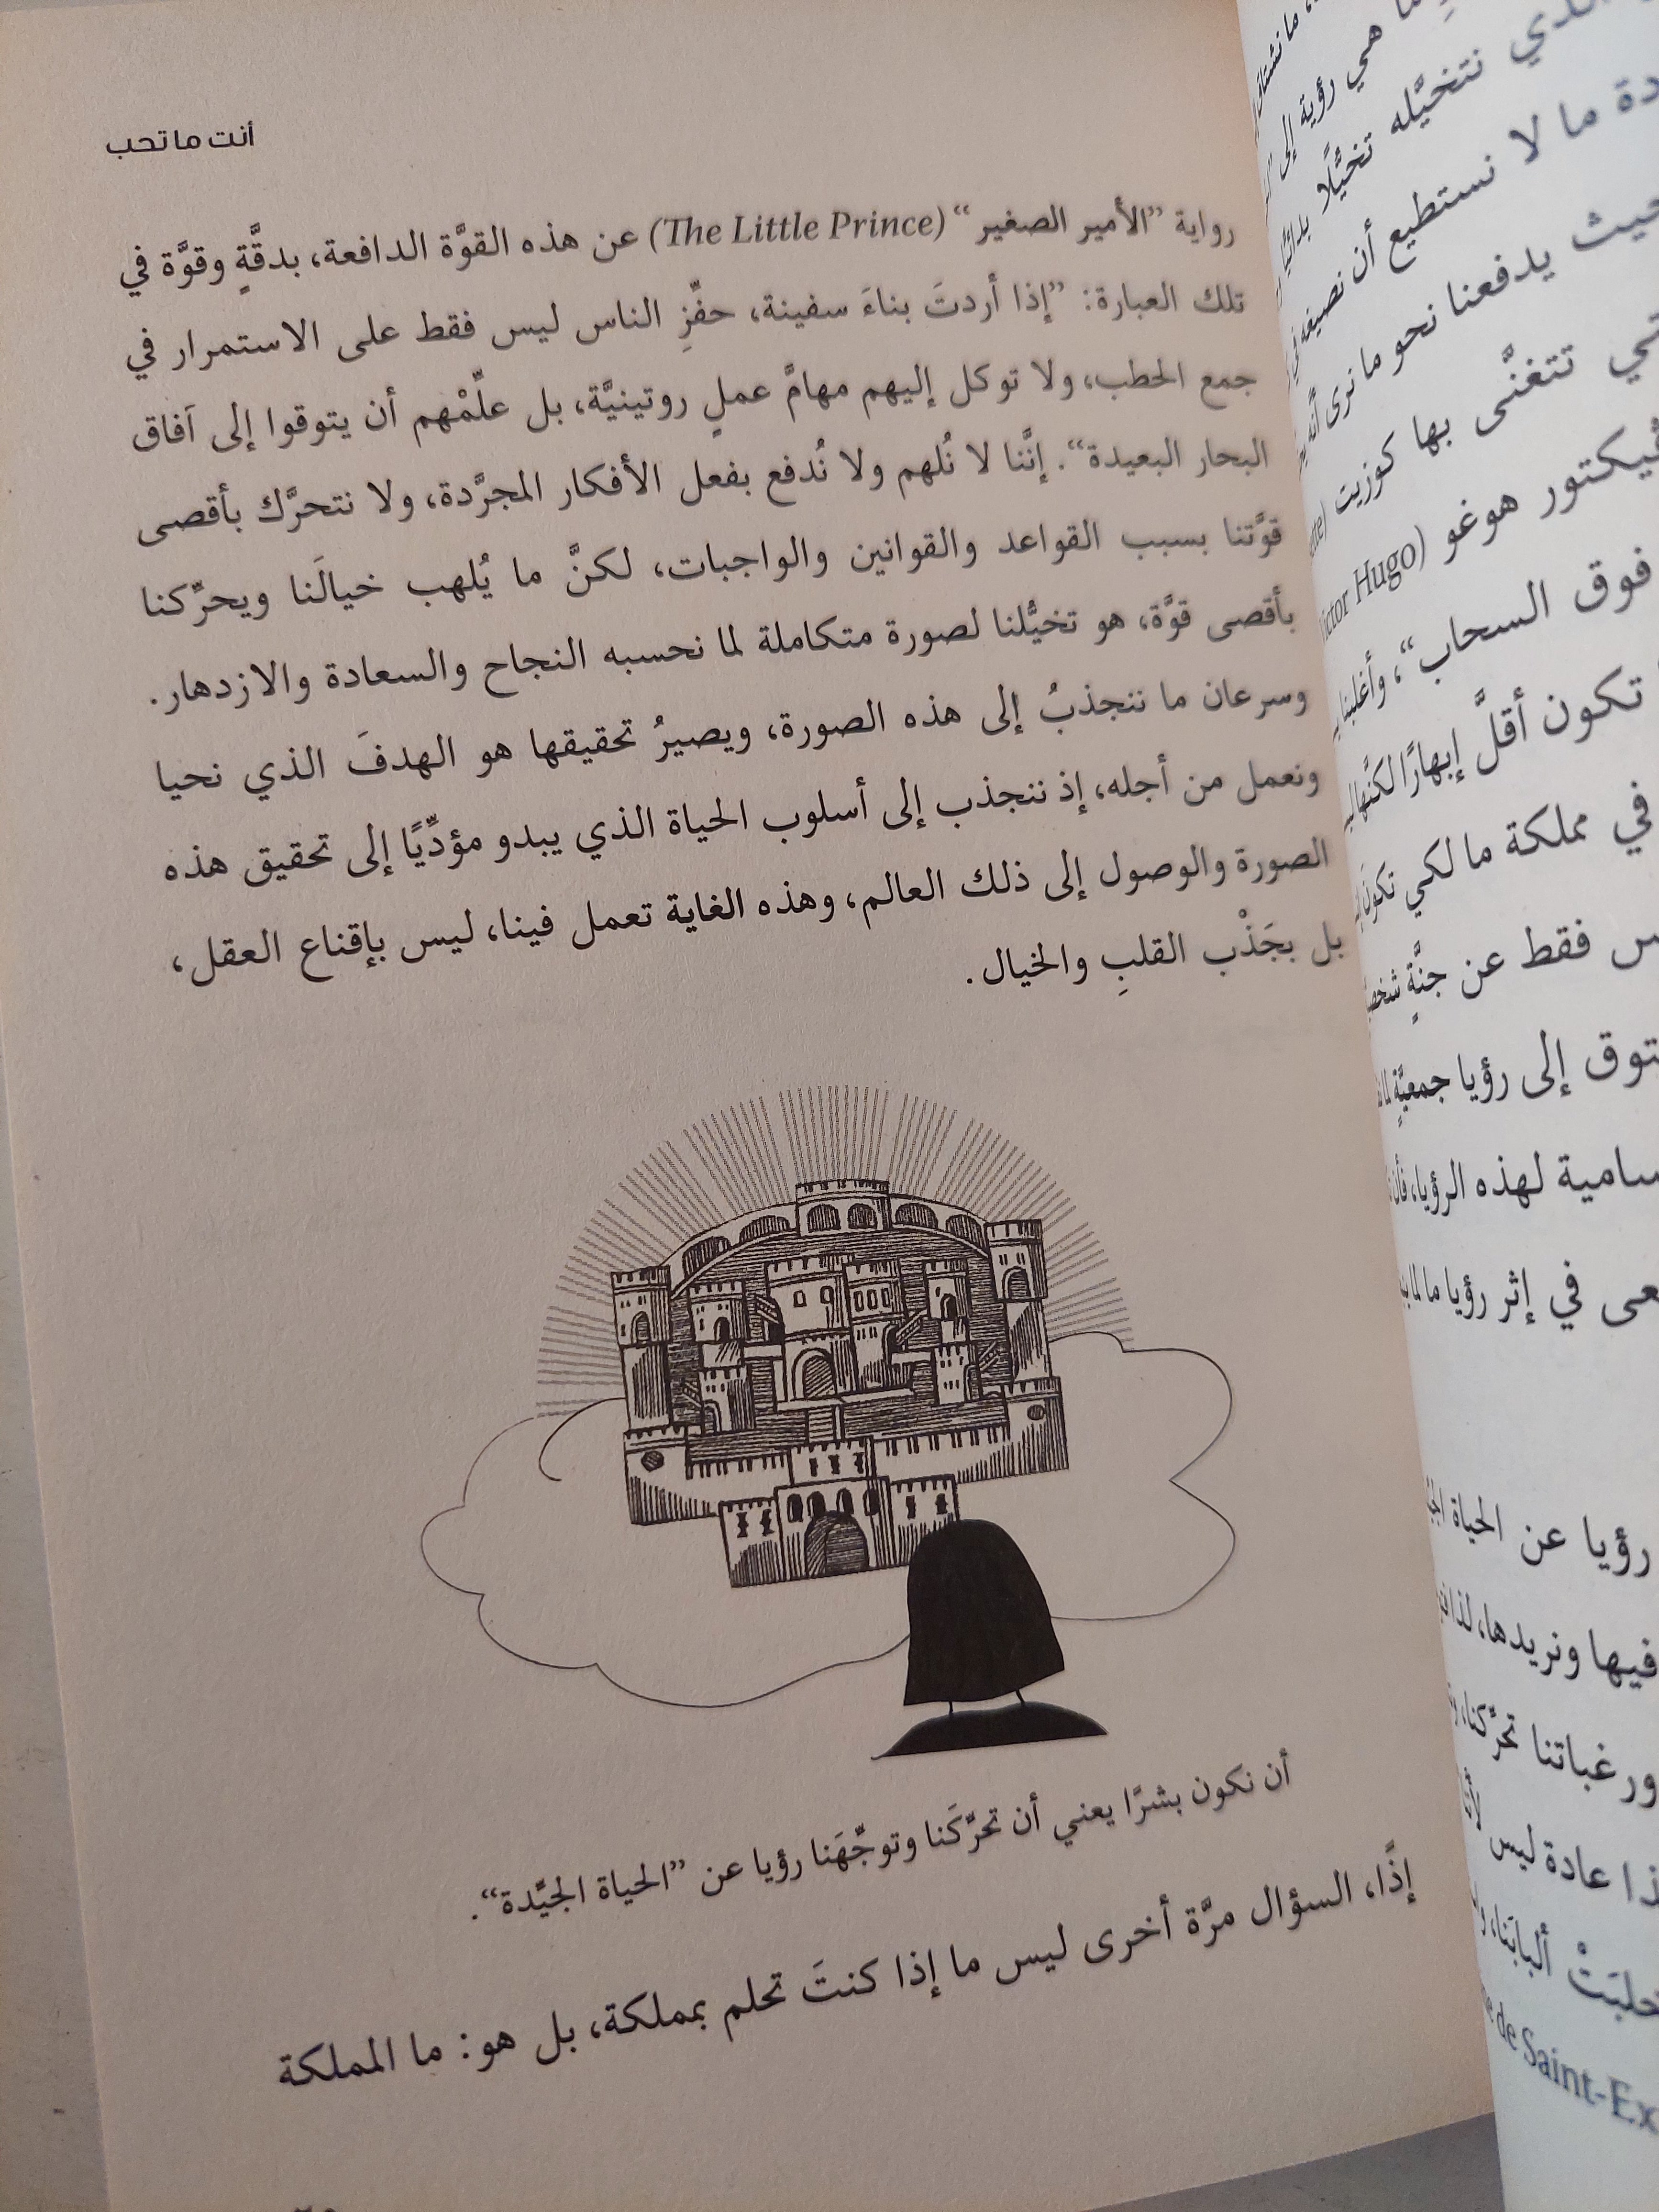 أنت ما تحب
رواية ”الأمير الصغير“ (The Little Prince) عن هذه القوَّة الدافعة، بدقَّةٍ وقوَّة في
تلك العبارة: ”إذا أردتَ بناءَ سفينة، حفِّزِ الناس ليس فقط على الاستمرار في
جمع الحطب، ولا توكل إليهم مهامَّ عملٍ روتينيَّة، بل علِّمْهم أن يتوقوا إلى آفاق
البحار البعيدة“. إنَّنا لا نُلهم ولا نُدفع بفعل الأفكار المجرَّدة، ولا نتحرَّك بأقصى
قوَّتنا بسبب القواعد والقوانين والواجبات، لكنَّ ما يُلهب خيالَنا ويحرِّكنا
بأقصى قوَّة، هو تخيُّلنا لصورة متكاملة لما نحسبه النجاح والسعادة والازدهار.
وسرعان ما ننجذبُ إلى هذه الصورة، ويصيرُ تحقيقها هو الهدفَ الذي نحيا
ونعمل من أجله، إذ ننجذب إلى أسلوب الحياة الذي يبدو مؤدِّيًا إلى تحقيق هذه
الصورة والوصول إلى ذلك العالم، وهذه الغاية تعمل فينا، ليس بإقناع العقل،
بل بجَذْب القلبِ والخيال.
أن نكون بشرًا يعني أن تحرِّكَنا وتوجِّهَنا رؤيا عن ”الحياة الجيِّدة“.
إذًا، السؤال مرَّة أخرى ليس ما إذا كنتَ تحلم بمملكة، بل هو: ما المملكة
هي رؤية إلى
الذي نتخيَّله تخيُّلًا
ما لا نستطيع أن نصيغه في
حيث يدفعنا نحو ما نرى أنَّه
تتغنَّى بها كوزيت
ڤيكتور هوغو (Victor Hugo
فوق السحاب“، وأغلبنا
تكون أقلَّ إبهارًا لكنَّها
في مملكة ما لكي تكون
فقط عن جنَّةٍ
إلى رؤيا جمعيَّةٍ
لهذه الرؤيا،
في إثر رؤيا ما لما
رؤيا عن الحياة
فيها ونريدها،
ورغباتنا تحرِّكنا،
عادة ليس
ألبابَنا،
de Saint-Ex